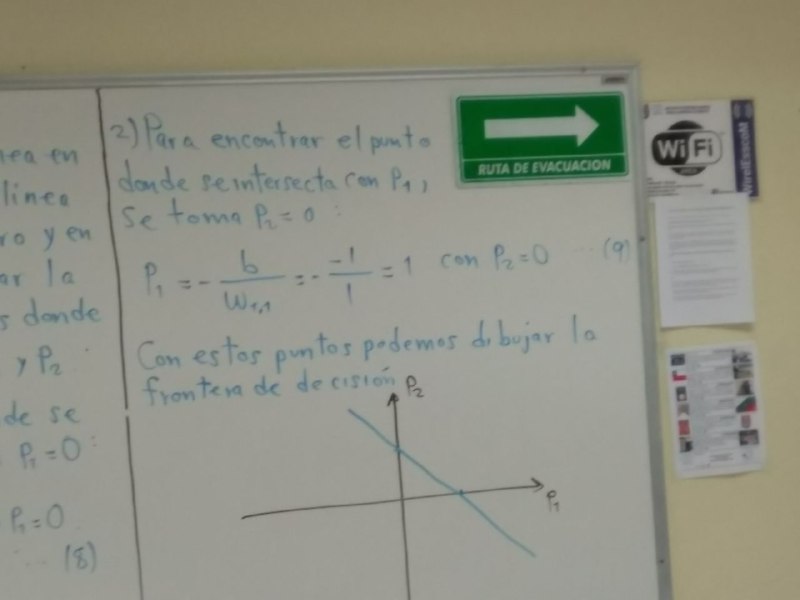 nea en
línea
ro y en
ar la
s donde
y P₂ :
de se
P₁=0 :
P₁=0
... (8)
2) Para encontrar el punto
donde se intersecta con P₁,
se toma P₂=0 :
P₁ = - b/W₁,₁ = - -1/1 = 1 con P₂=0 ... (9)
Con estos puntos podemos dibujar la
frontera de decisión
P₂
P₁
RUTA DE EVACUACION
WiFi